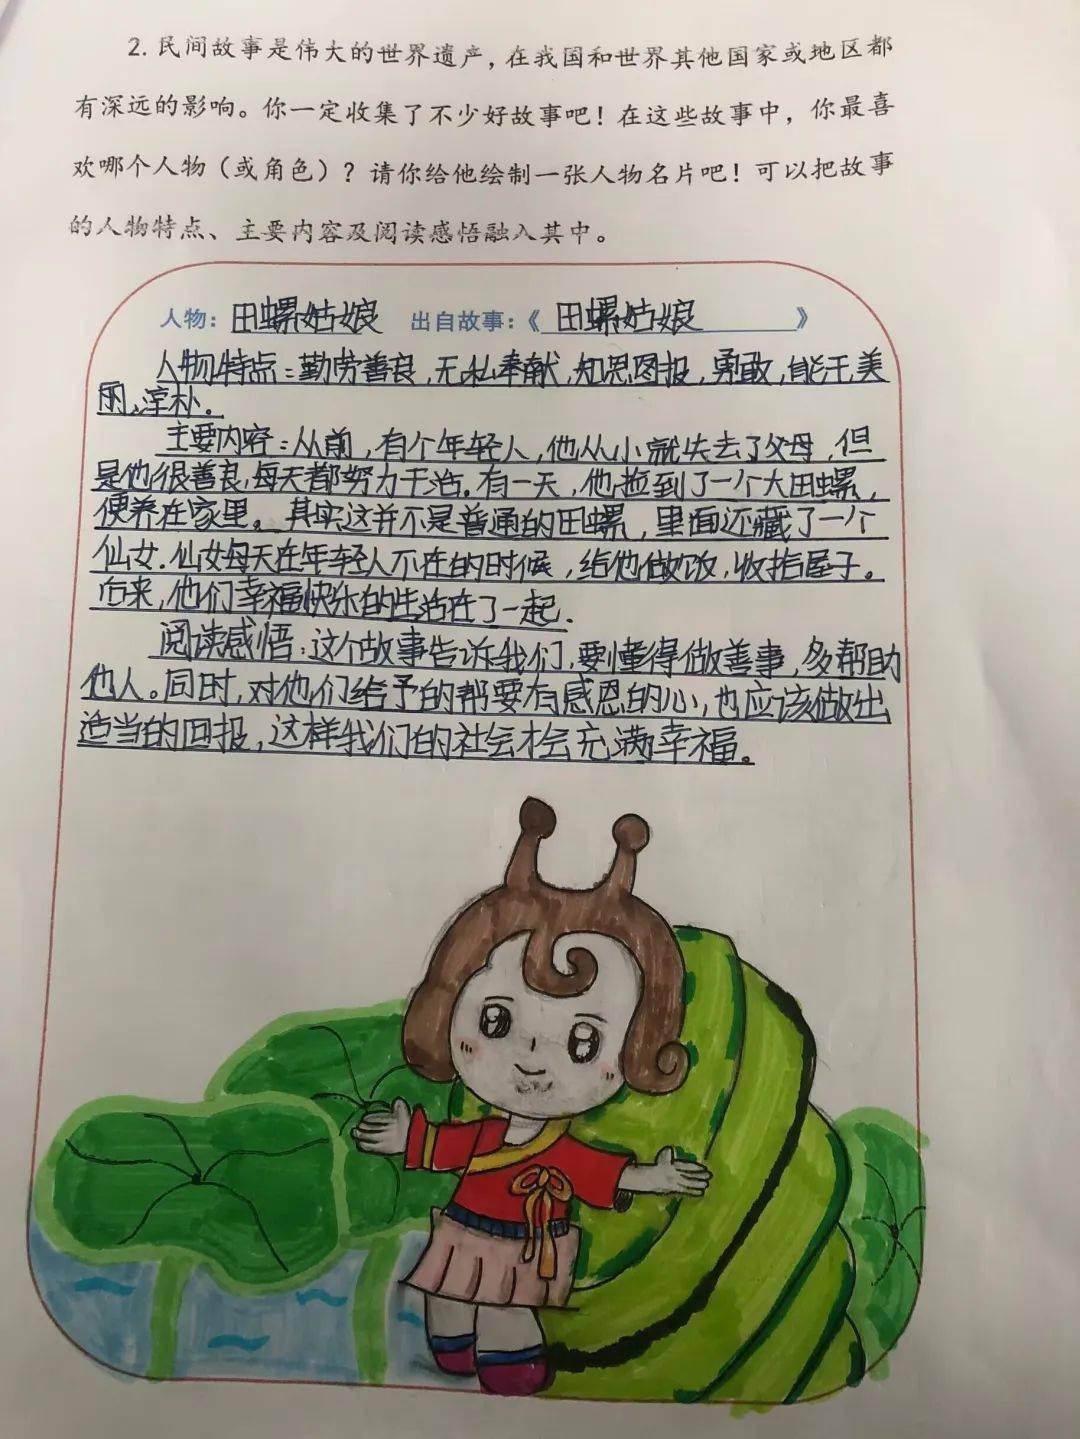 2. 民间故事是伟大的世界遗产，在我国和世界其他国家或地区都
有深远的影响。你一定收集了不少好故事吧！在这些故事中，你最喜
欢哪个人物（或角色）？请你给他绘制一张人物名片吧！可以把故事
的人物特点、主要内容及阅读感悟融入其中。
人物：田螺姑娘 出自故事：《田螺姑娘》
人物特点：勤劳善良，无私奉献，知恩图报，勇敢，能干，美
丽、淳朴。
主要内容：从前，有个年轻人，他从小就失去了父母，但
是他很善良，每天都努力干活。有一天，他捡到了一个大田螺，
便养在家里。其实这并不是普通的田螺，里面还藏了一个
仙女．仙女每天在年轻人不在的时候，给他做饭，收拾屋子。
后来，他们幸福快乐的生活在了一起．
阅读感悟：这个故事告诉我们，要懂得做善事，多帮助
他人。同时，对他们给予的帮要有感恩的心，也应该做出
适当的回报，这样我们的社会才会充满幸福。